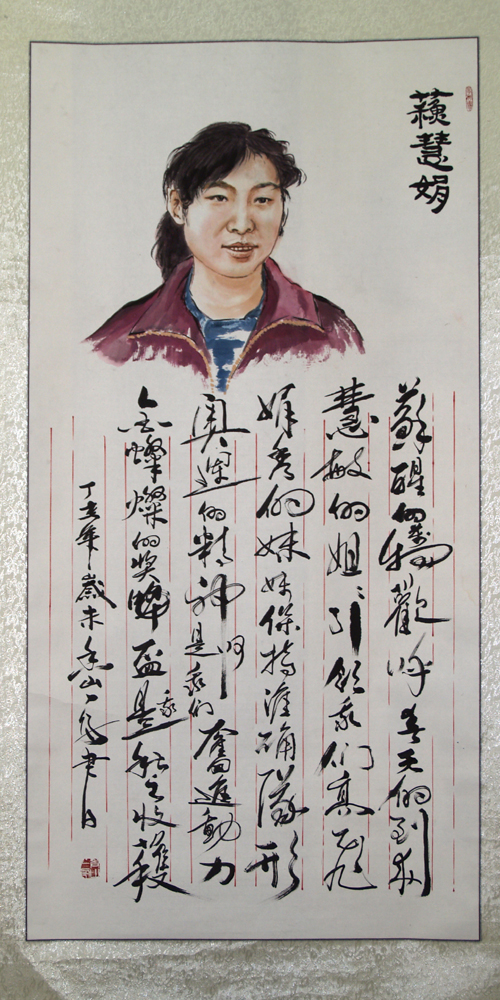 蘇慧娟
蘇醒的萬物歡呼春天的到來
慧敏的姐姐引領我們高飛
娟秀的妹妹保持準確隊形
奧運的精神是我們奮進動力
金燦燦的獎牌盃是我收穫
丁丑年歲末香山